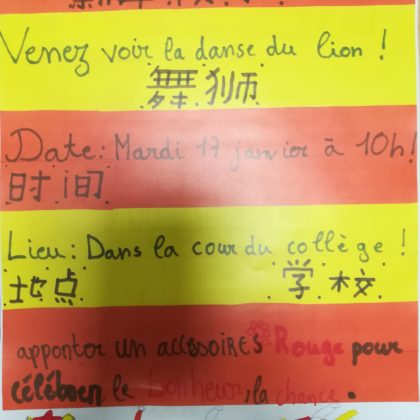 Venez voir la danse du lion !
舞狮
Date : Mardi 17 janvier à 10h!
时间
Lieu : Dans la cour du collège !
地点 学校
apporter un accesoires Rouge pour
célébrer le bonheur, la chance.